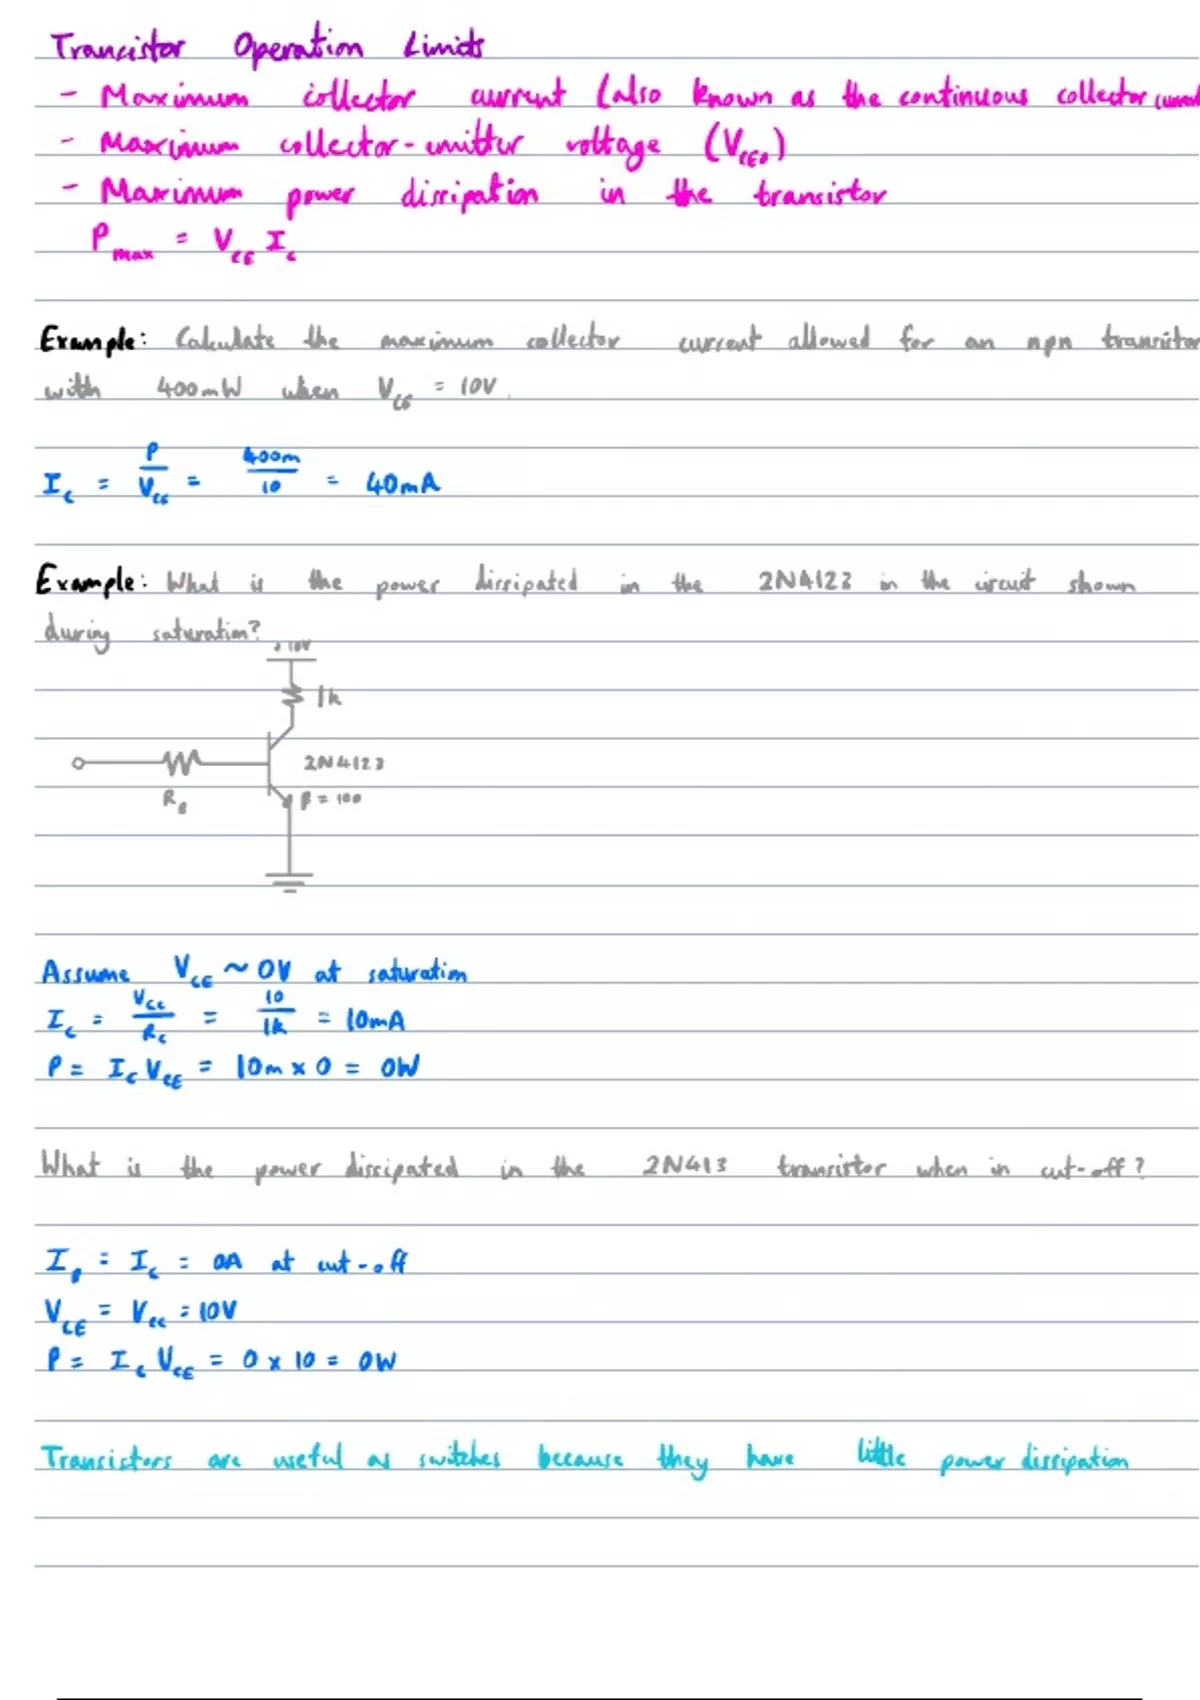 Transistor Operation Limits
- Maximum collector current (also known as the continuous collector current
- Maximum collector-emitter voltage (V_CEO)
- Maximum power dissipation in the transistor
P_max = V_CE I_C
Example: Calculate the maximum collector current allowed for an npn transistor
with 400mW when V_CE = 10V.
I_C = P/V_CE = 400m/10 = 40mA
Example: What is the power dissipated in the 2N4123 in the circuit shown
during saturation?
+10V
1k
2N4123
R_B
β = 100
Assume V_CE ~ 0V at saturation
I_C = V_CC/R_C = 10/1k = 10mA
P = I_C V_CE = 10m x 0 = 0W
What is the power dissipated in the 2N413 transistor when in cut-off?
I_B = I_C = 0A at cut-off
V_CE = V_CC = 10V
P = I_C V_CE = 0 x 10 = 0W
Transistors are useful as switches because they have little power dissipation